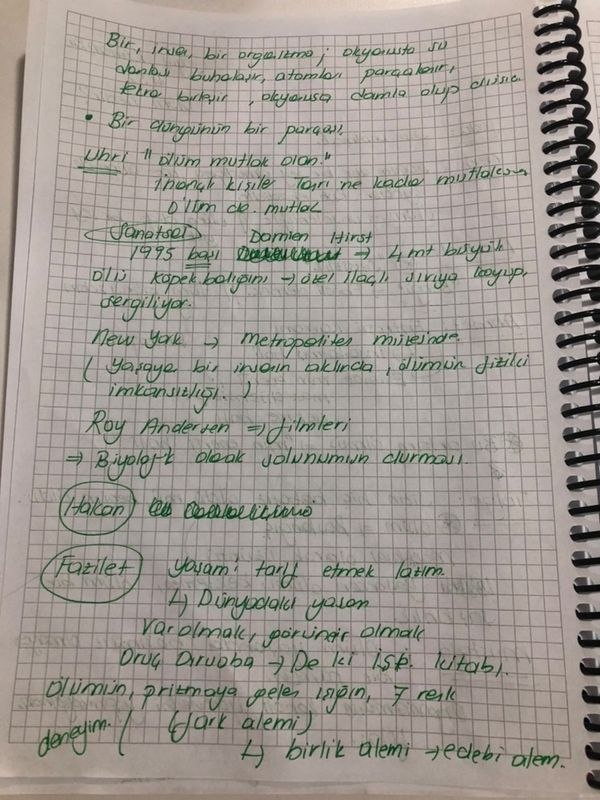 Bir, insan, bir organizma; okyanusta su
damlası buhalaşır, atomları parçalanır,
tekra birleşir, okyanusa damla olup düşüsü
• Bir döngünün bir parçası.
Uhri "ölüm mutlak olan."
İnançlı kişiler Tanrı ne kadar mutlaksa
ölüm de mutlak
Sanatsal Damien Hirst
1995 başı → 4 mt büyük
ölü köpek balığını → özel ilaçlı sıvıya koyup,
sergiliyor.
New York → Metropoliten müzesinde.
( Yaşayan bir insanın aklında, ölümün fiziki
imkansızlığı. )
Roy Andersen ⇒ filmleri
⇒ Biyolojik olarak solunumun durması.
Hakan
Fazilet Yaşamı tarif etmek lazım.
↳ Dünyadaki yaşam
Varolmak, görünür olmak
Oruç Aruoba → De ki İşte kitabı.
ölümün, prizmaya gelen ışığın, 7 renk
deneyim. ( (fark alemi)
↳ birlik alemi → edebi alem.